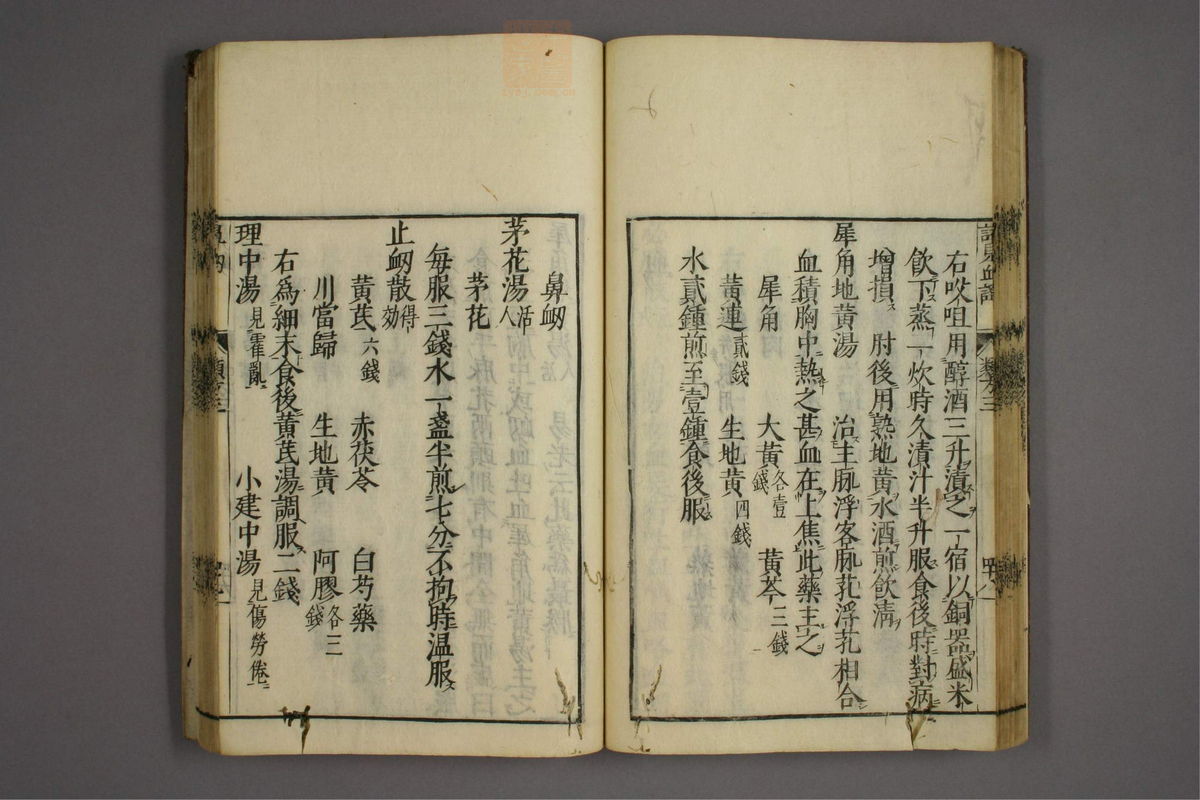 右㕮咀用醇酒三升漬之一宿以銅器盛米
飲下蒸一炊時久漬汁半升服食後時對病
增損 肘後用熟地黃水酒煎飲清
犀角地黃湯 治主脈浮客脈芤浮芤相合
血積胸中熱之甚血在上焦此藥主之
犀角 大黃各壹錢 黃芩三錢
黃連貳錢 生地黃四錢
水貳鍾煎至壹鍾食後服
鼻衂
茅花湯活人
茅花
每服三錢水一盞半煎七分不拘時温服
止衂散得効
黃芪六錢 赤茯苓 白芍藥
川當歸 生地黃 阿膠各三錢
右爲細末食後黃芪湯調服二錢
理中湯見霍亂 小建中湯見傷勞倦